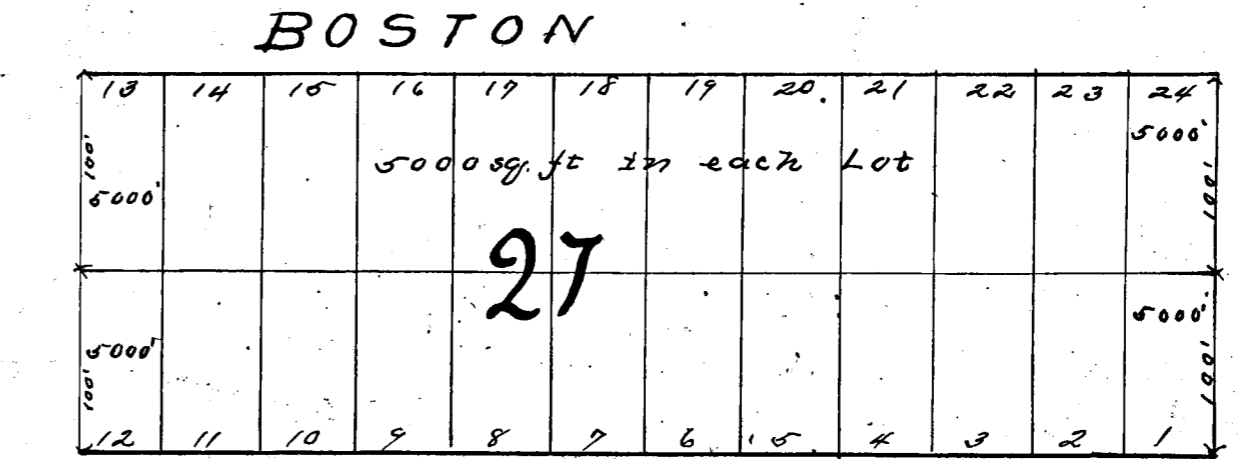 BOSTON
13 14 15 16 17 18 19 20. 21 22 23 24
5000'
100' 5000sq.ft in each Lot 100'
5000'
27
5000'
5000'
100' 100'
12 11 10 9 8 7 6 5 4 3 2 1